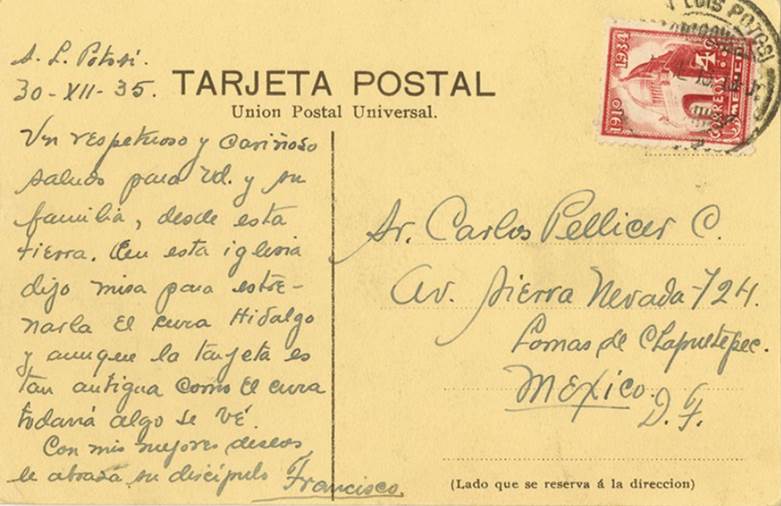 S. L. Potosí.
30-XII-35.
TARJETA POSTAL
Union Postal Universal.
Un respetuoso y cariñoso
saludo para Ud. y su
familia, desde esta
tierra. En esta iglesia
dijo misa para estre-
narla el cura Hidalgo
y aunque la tarjeta es
tan antigua como el cura
todavía algo se vé.
Con mis mejores deseos
le abraza su discípulo Francisco.
LUIS POTOSI
1910 1934
CORREOS
MEXICO
Sr. Carlos Pellicer C.
Av. Sierra Nevada-724.
Lomas de Chapultepec.
MEXICO.
D. F.
(Lado que se reserva á la direccion)